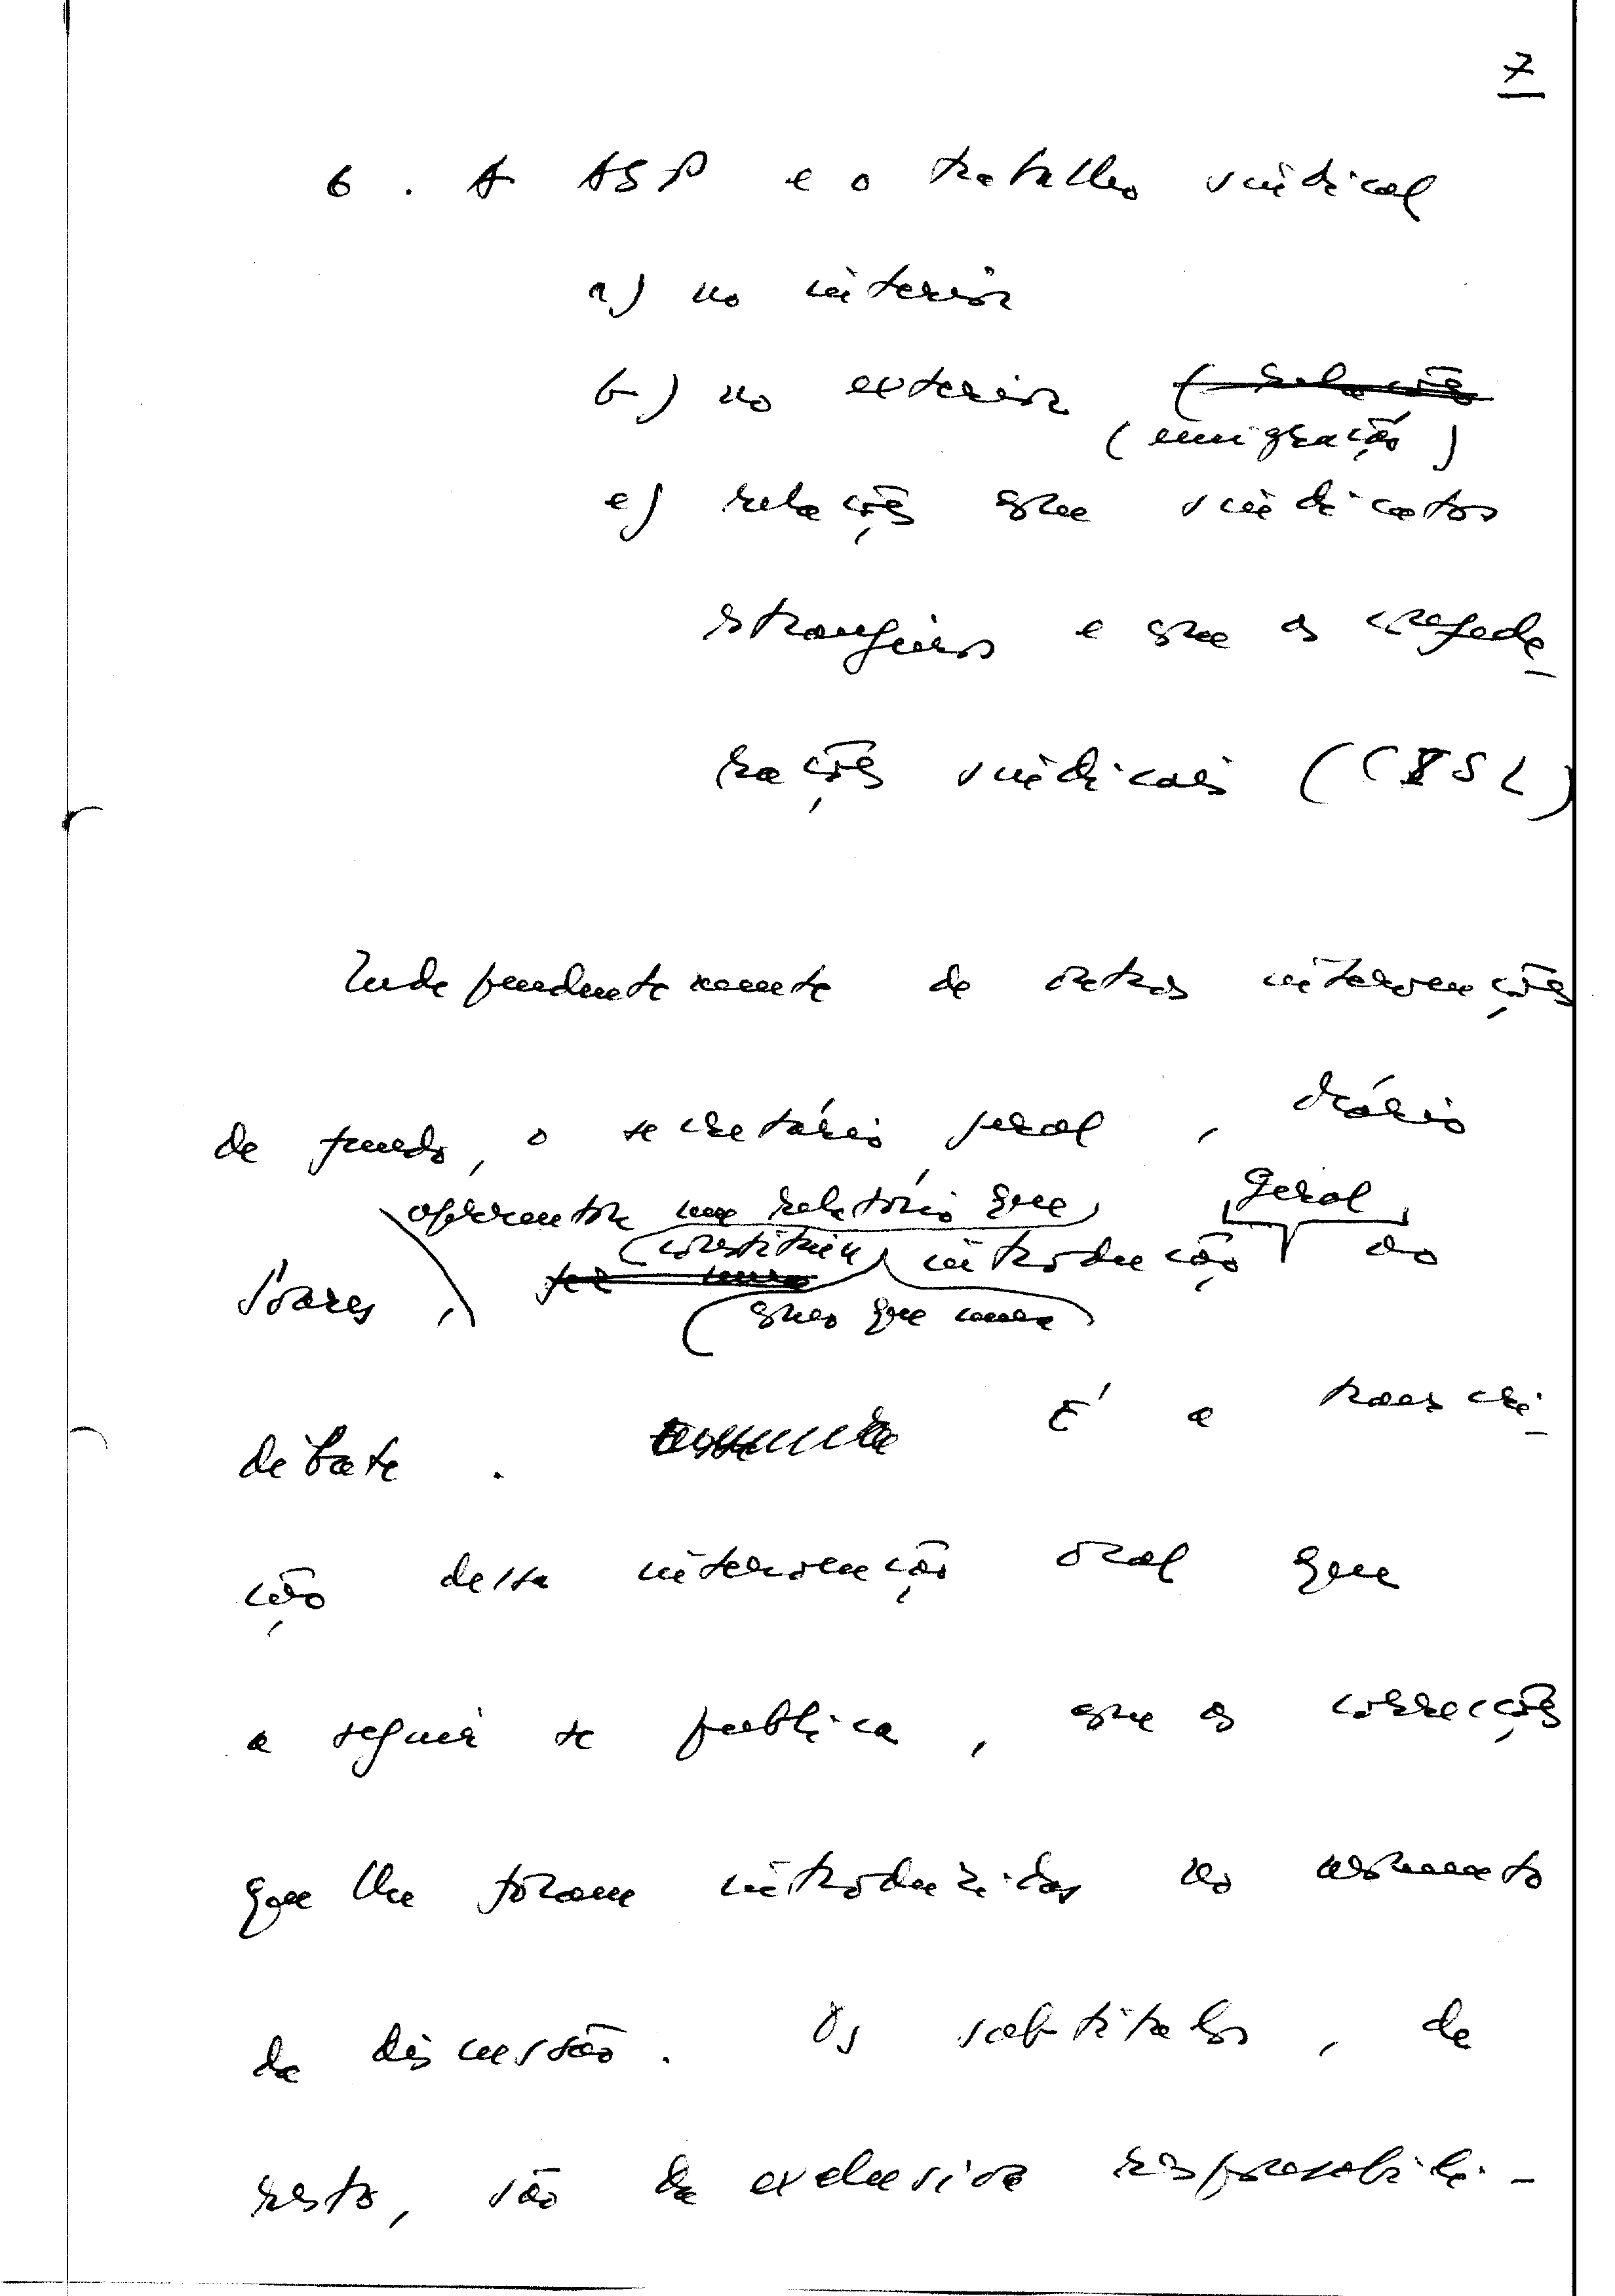 7
6. A ASP e o trabalho sindical
a) no interior
b) no exterior (relações
(emigração)
c) relações com sindicatos
estrangeiros e com as confede-
rações sindicais (CISL)
Independentemente de outras intervenções
de fundo, o secretário geral, Mário
apresentou um relatório que geral
constituiu introdução ao
Soares, fez uma
como que uma
debate. É a transcri-
ção dessa intervenção oral que
a seguir se publica, com as correcções
que lhe foram introduzidas no momento
da discussão. Os subtítulos, de
resto, são da exclusiva responsabili-